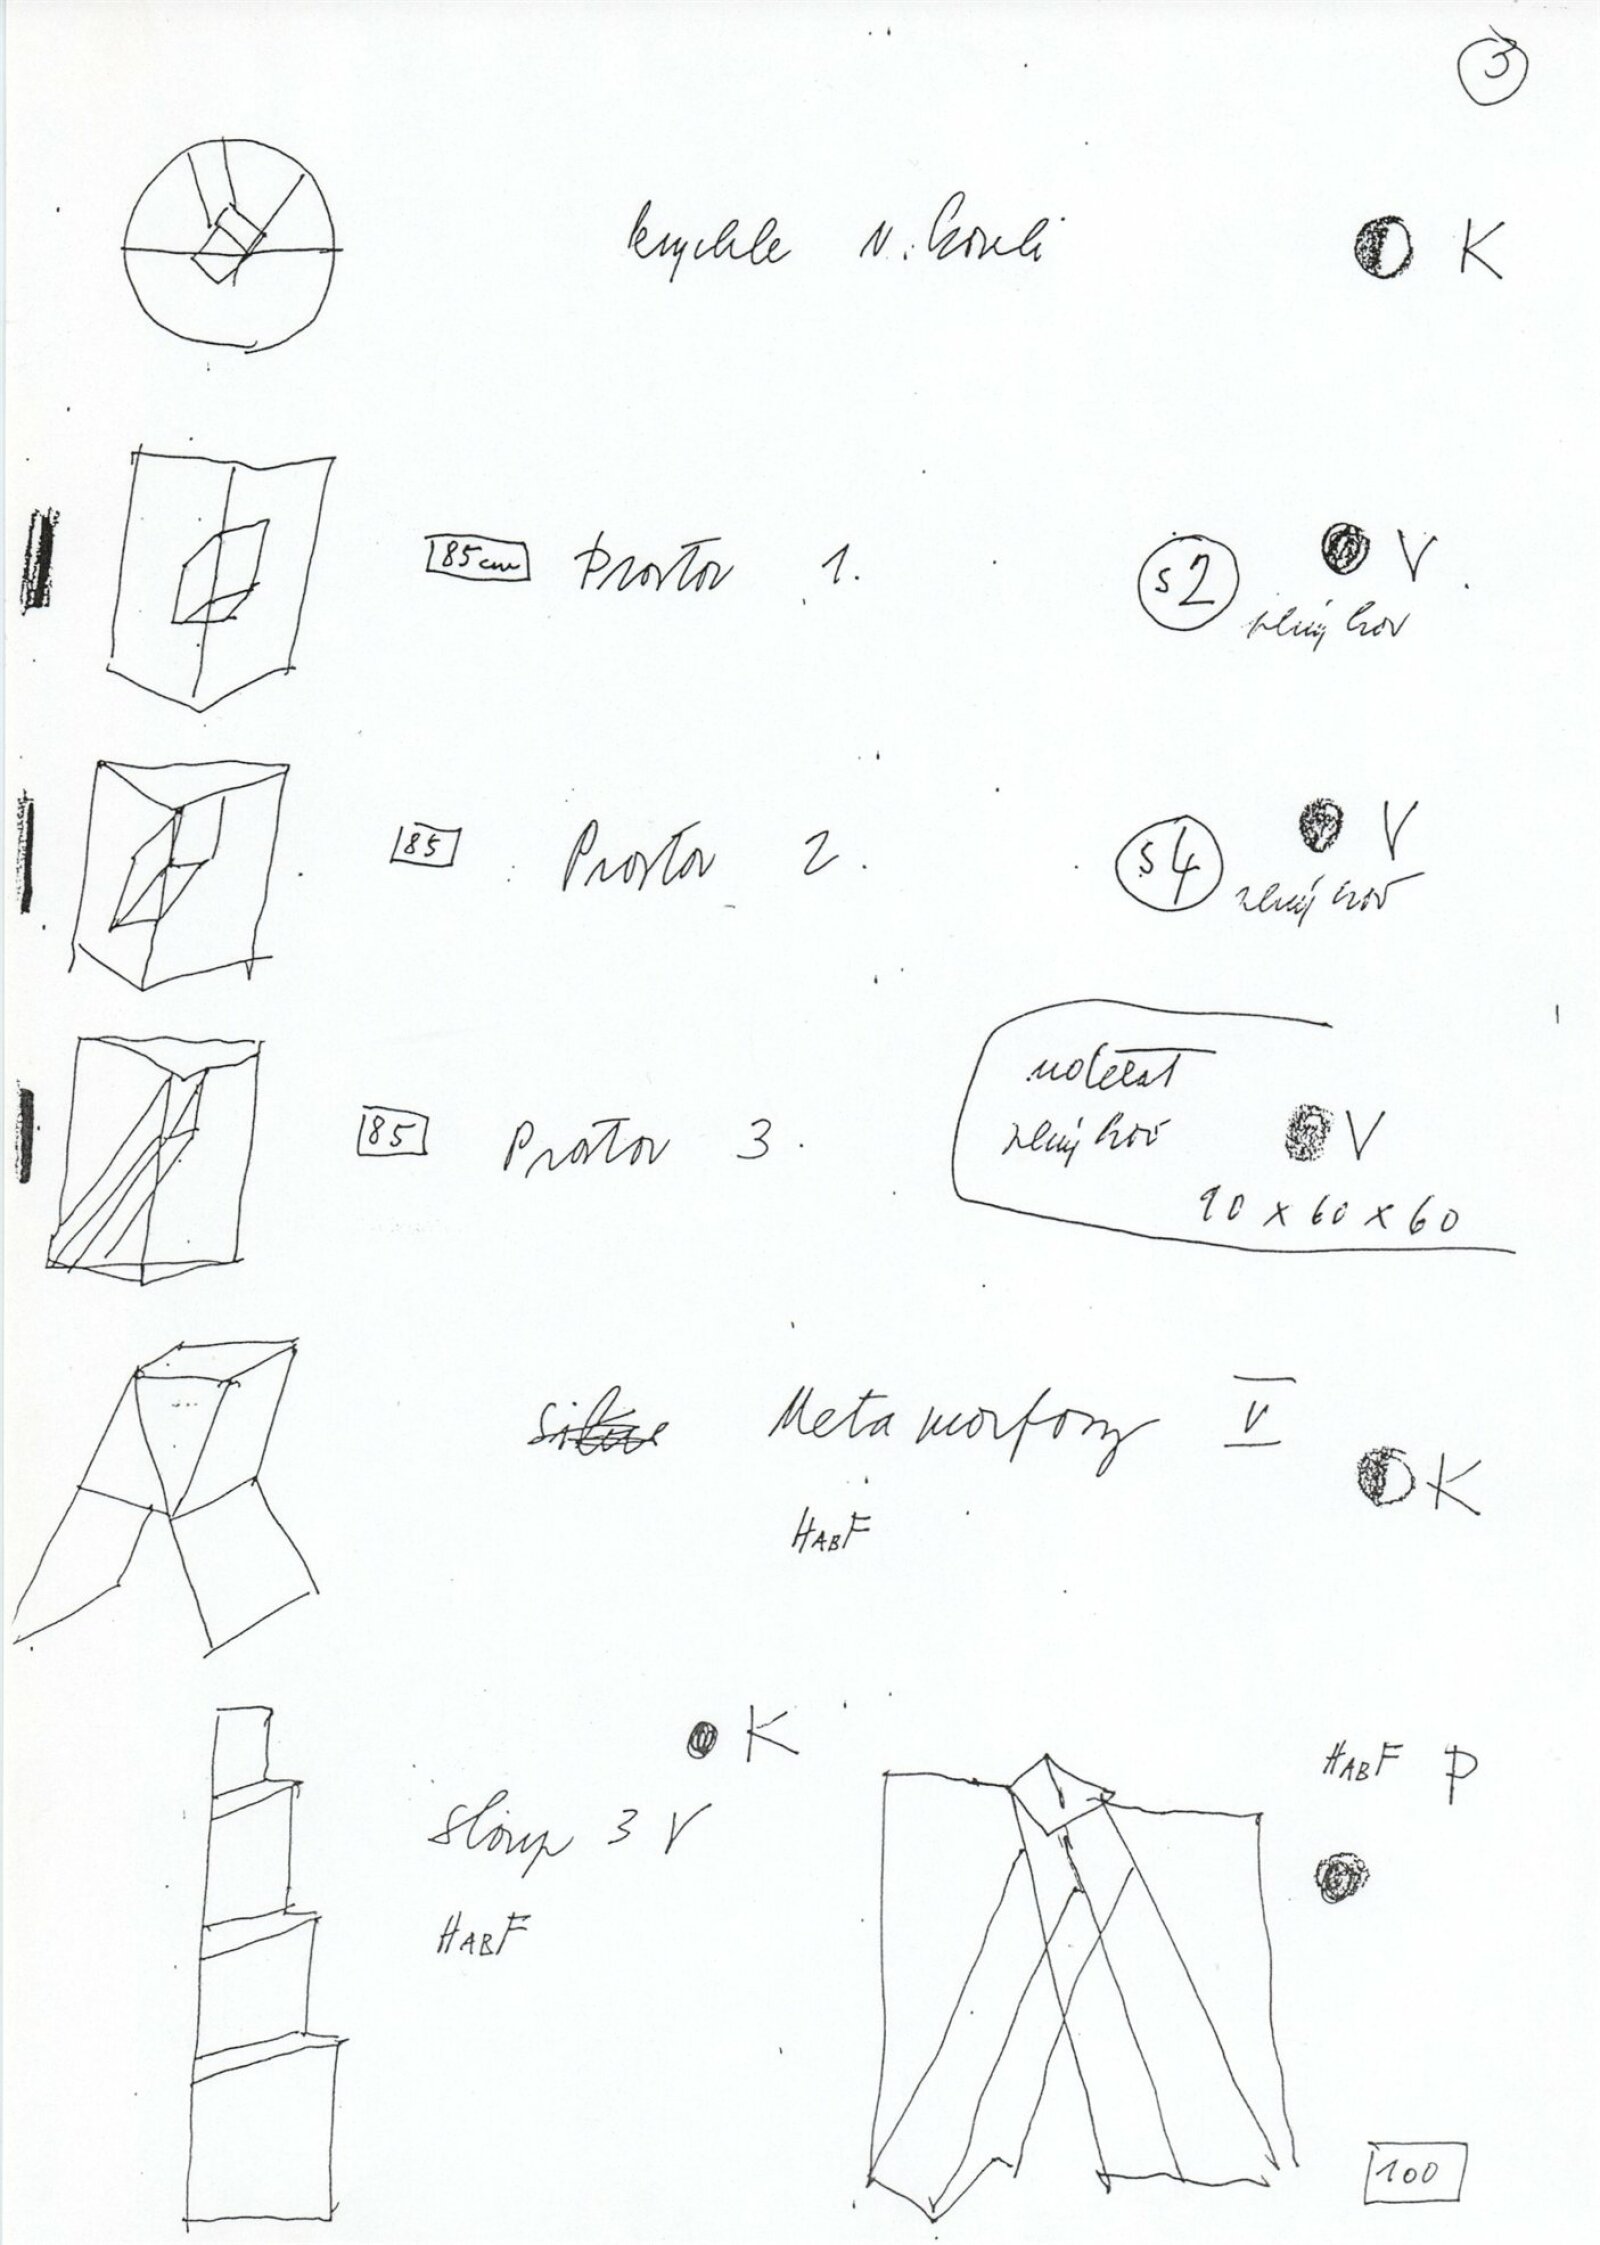 3
krychle v. kouli
K
85cm
Prostor 1.
s2
V
plný kov
85
Prostor 2.
s4
V
plný kov
85
Prostor 3.
plný kov
V
90 x 60 x 60
Metamorfozy V
K
HABF
K
Sloup 3 V
HABF
HABF P
100